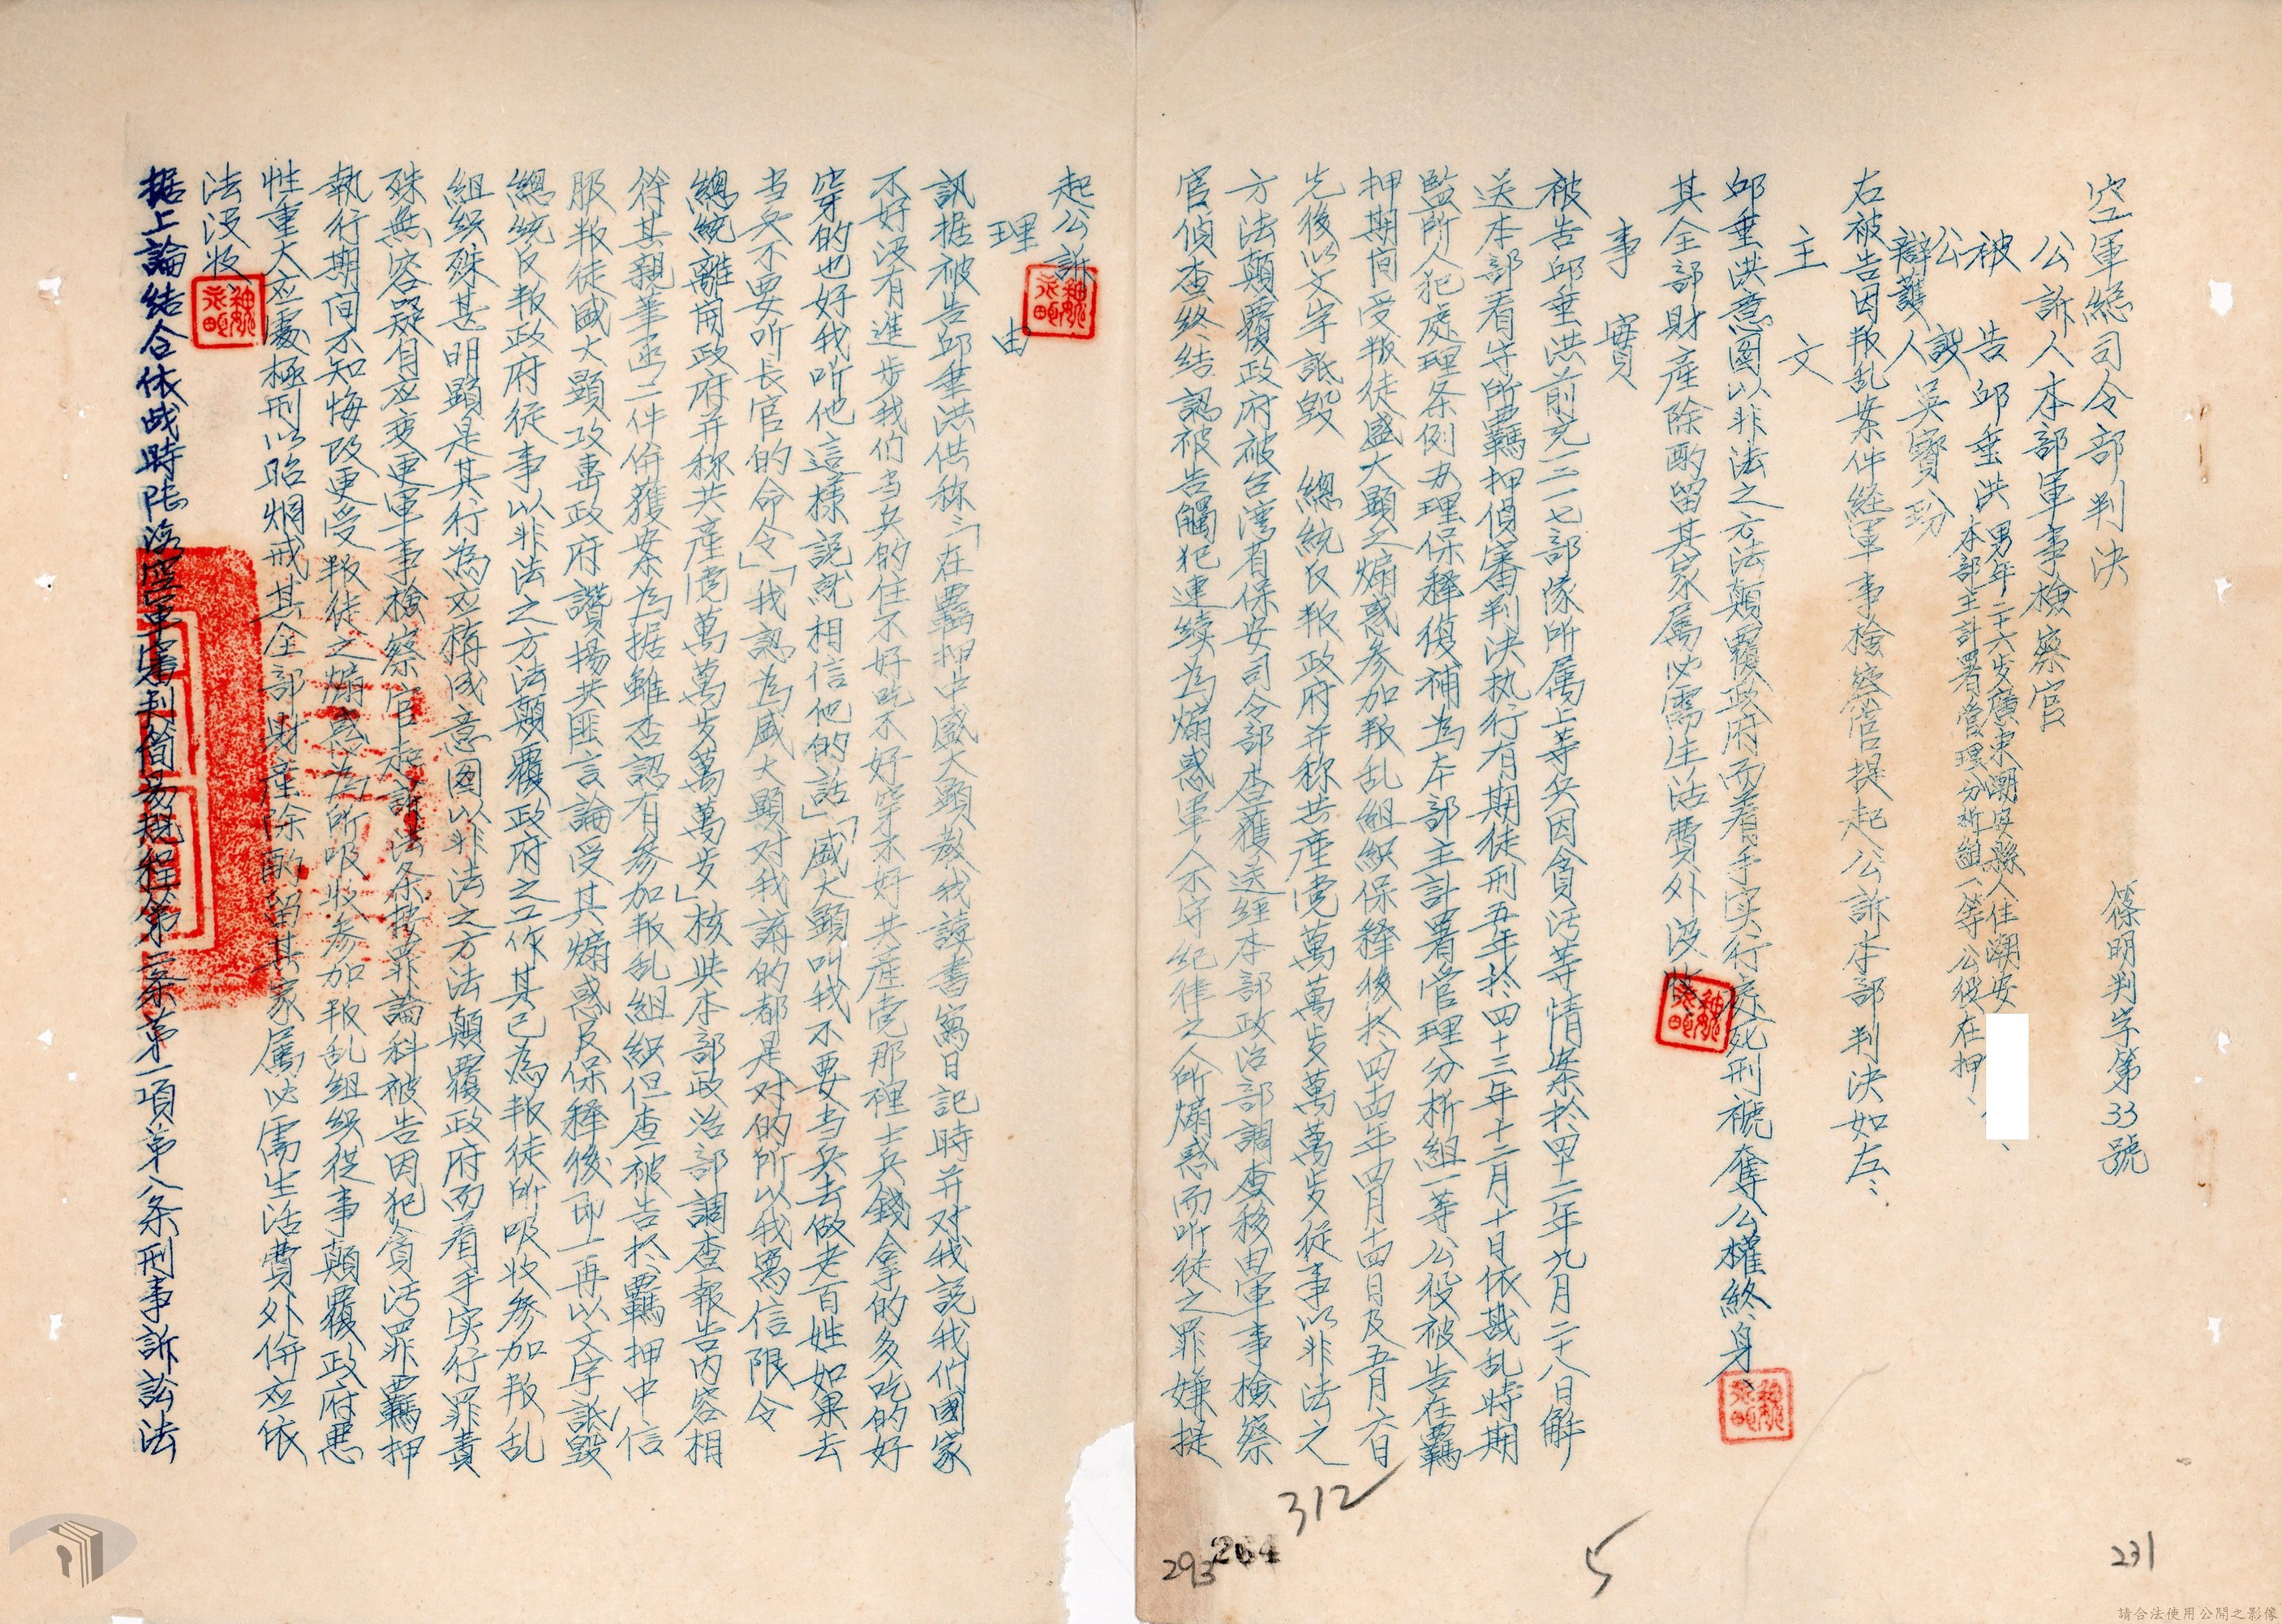 空軍總司令部判決
篠明判字第33號
公訴人本部軍事檢察官
被告邱垂洪男年二十六岁廣東潮安縣人住潮安
本部主計署管理分析組一等公役在押、
公設
辯護人吳寶玢
右被告因叛乱案件經軍事檢察官提起公訴本部判決如左、
主文
邱垂洪意圖以非法之方法顛覆政府而着手实行處死刑褫奪公權終身、
其全部財產除酌留其家屬必需生活費外沒收、
事實
被告邱垂洪前充二二一七部隊所属上等兵因貪污等情案於四十二年九月二十八日解
送本部看守所羈押偵審判決执行有期徒刑五年於四十三年十二月十日依戡乱時期
監所人犯處理条例办理保釋復補為本部主計署管理分析組一等公役被告在羈
押期间受叛徒盛大顯之煽惑参加叛乱組織保釋後於四四年四月十四日及五月六日
先後以文字詆毀　總統反叛政府并称共產党萬萬岁萬萬萬岁從事以非法之
方法顛覆政府被台湾省保安司令部查獲送經本部政治部調查移由軍事檢察
官偵查終结認被告觸犯連续為煽惑軍人不守紀律之人所煽惑而听從之罪嫌提
起公訴
理由
訊据被告邱垂洪供称:「在羈押中盛大顯教我讀書寫日記時并对我說我们國家
不好沒有進步我们当兵的住不好吃不好穿不好共產党那裡士兵錢拿的多吃的好
穿的也好我听他這樣說就相信他的話」「盛大顯叫我不要当兵去做老百姓如果去
当兵不要听长官的命令」「我認為盛大顯对我講的都是对的所以我寫信限令
總統離開政府并称共產党萬萬岁萬萬萬岁」核與本部政治部調查報告内容相
符其親筆函二件併獲案為据雖否認有参加叛乱組織但查被告於羈押中信
服叛徒盛大顯攻击政府讚揚共匪言論受其煽惑及保釋後即一再以文字詆毀
總統反叛政府從事以非法之方法顛覆政府之工作其已為叛徒所吸收参加叛乱
組织殊甚明顯是其行為应構成意图以非法之方法顛覆政府而着手实行罪責
殊無容疑自应变更軍事檢察官起訴法条按罪論科被告因犯貪污罪羈押
執行期间不知悔改更受叛徒之煽惑為所吸收参加叛乱組织從事顛覆政府悪
性重大应處極刑以昭炯戒其全部財產除酌留其家屬必需生活費外併应依
法没收、
据上論结合依战時陸海空軍審判簡易規程第二条第一項第八条刑事訴訟法
312
293
264
5
231
請合法使用公開之影像